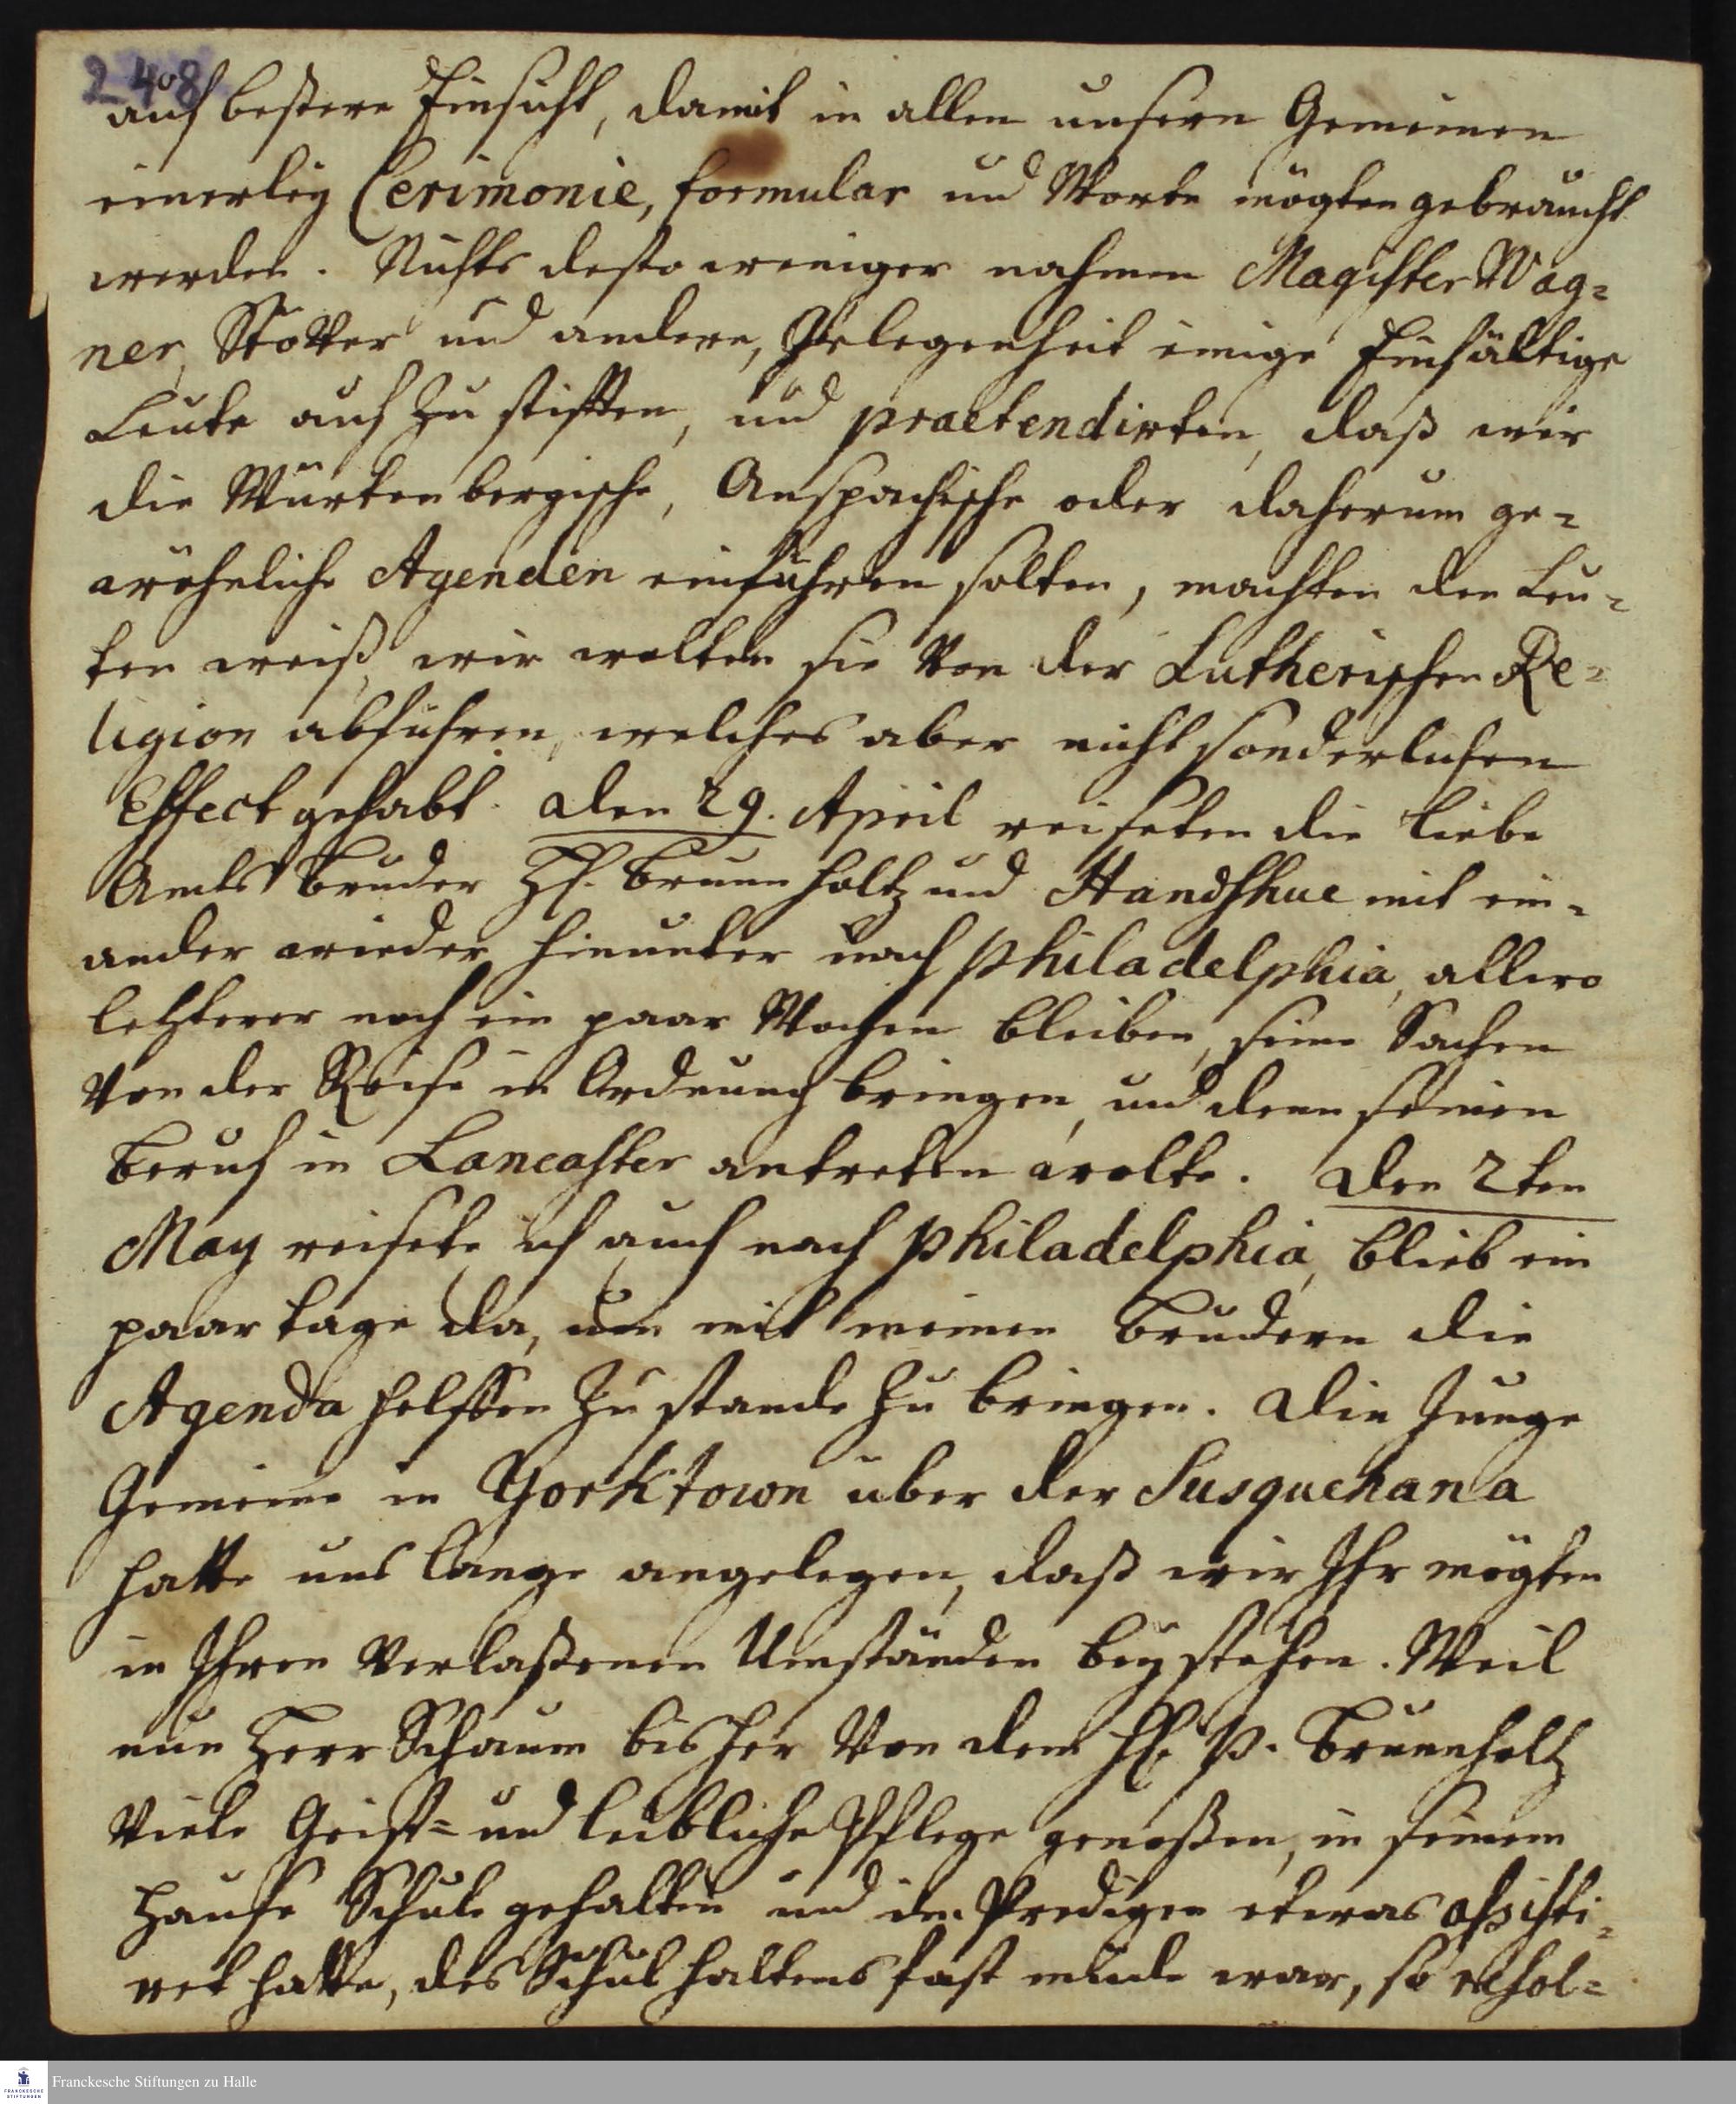 248
auf bessere Einsicht, damit in allen unsern Gemeinen
einerley Cerimonie, formular und Worte mögten gebraucht
werden. Nichts desto weniger nahmen Magister Wag=
ner, Stöver und andere, Gelegenheit einige Einfältige
Leute auf zu stifften, und praetendirten, daß wir
die Würtenbergische, Anspachische oder daherum ge=
wöhnliche Agenden einführen solten, machten den Leu=
ten weiß, wir wolten sie von der Lutherischen Re=
ligion abführen, welches aber nicht sonderlichen
Effect gehabt. den 29. April reiseten die liebe
Amts Brüder H. Brunnholtz und Handshue mit ein=
ander wieder hinunter nach Philadelphia, allwo
letzterer noch ein paar Wochen bleiben, seine Sachen
von der Reise in Ordnung bringen, und denn seinen
Beruf in Lancaster antreten wolte. den 2ten
May reisete ich auch nach Philadelphia, blieb ein
paar tage da, um mit meinen Brüdern die
Agenda helffen zu stande zu bringen. Die Junge
Gemeine in Yorktown über der Susquehana
hatte uns lange angelegen, daß wir Ihr mögten
in Ihren verlaßenen Umständen beystehen. Weil
nun Herr Schaum bisher von dem H. P. Brunnholtz
viele Geist= und leibliche Pflege genoßen, in seinem
Hause Schule gehalten und im Predigen etwas assisti=
ret hatte, des Schulhaltens fast müde war, so resol=
Franckesche Stiftungen zu Halle
FRANCKESCHE
STIFTUNGEN